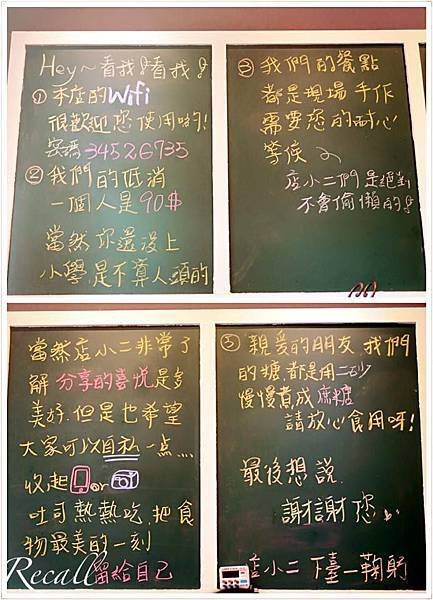 Hey~看我!看我!
① 本店的Wifi
很歡迎您使用喲!
密碼 34526735
② 我們的低消
一個人是90$
當然你還沒上
小學,是不算人頭的
③ 我們的餐點
都是現場手作
需要您的耐心
等侯
店小二們是絕對
不會偷懶的!
當然店小二非常了
解 分享的喜悅是多
美好.但是也希望
大家可以自私一点....
收起 or
吐司熱熱吃.把食
物最美的一刻
留給自己
親爱的朋友.我們
的糖都是用二砂
慢慢煮成蔗糖
請放心食用呀!
最後想說.
謝謝您
店小二 下臺一鞠躬
Recall